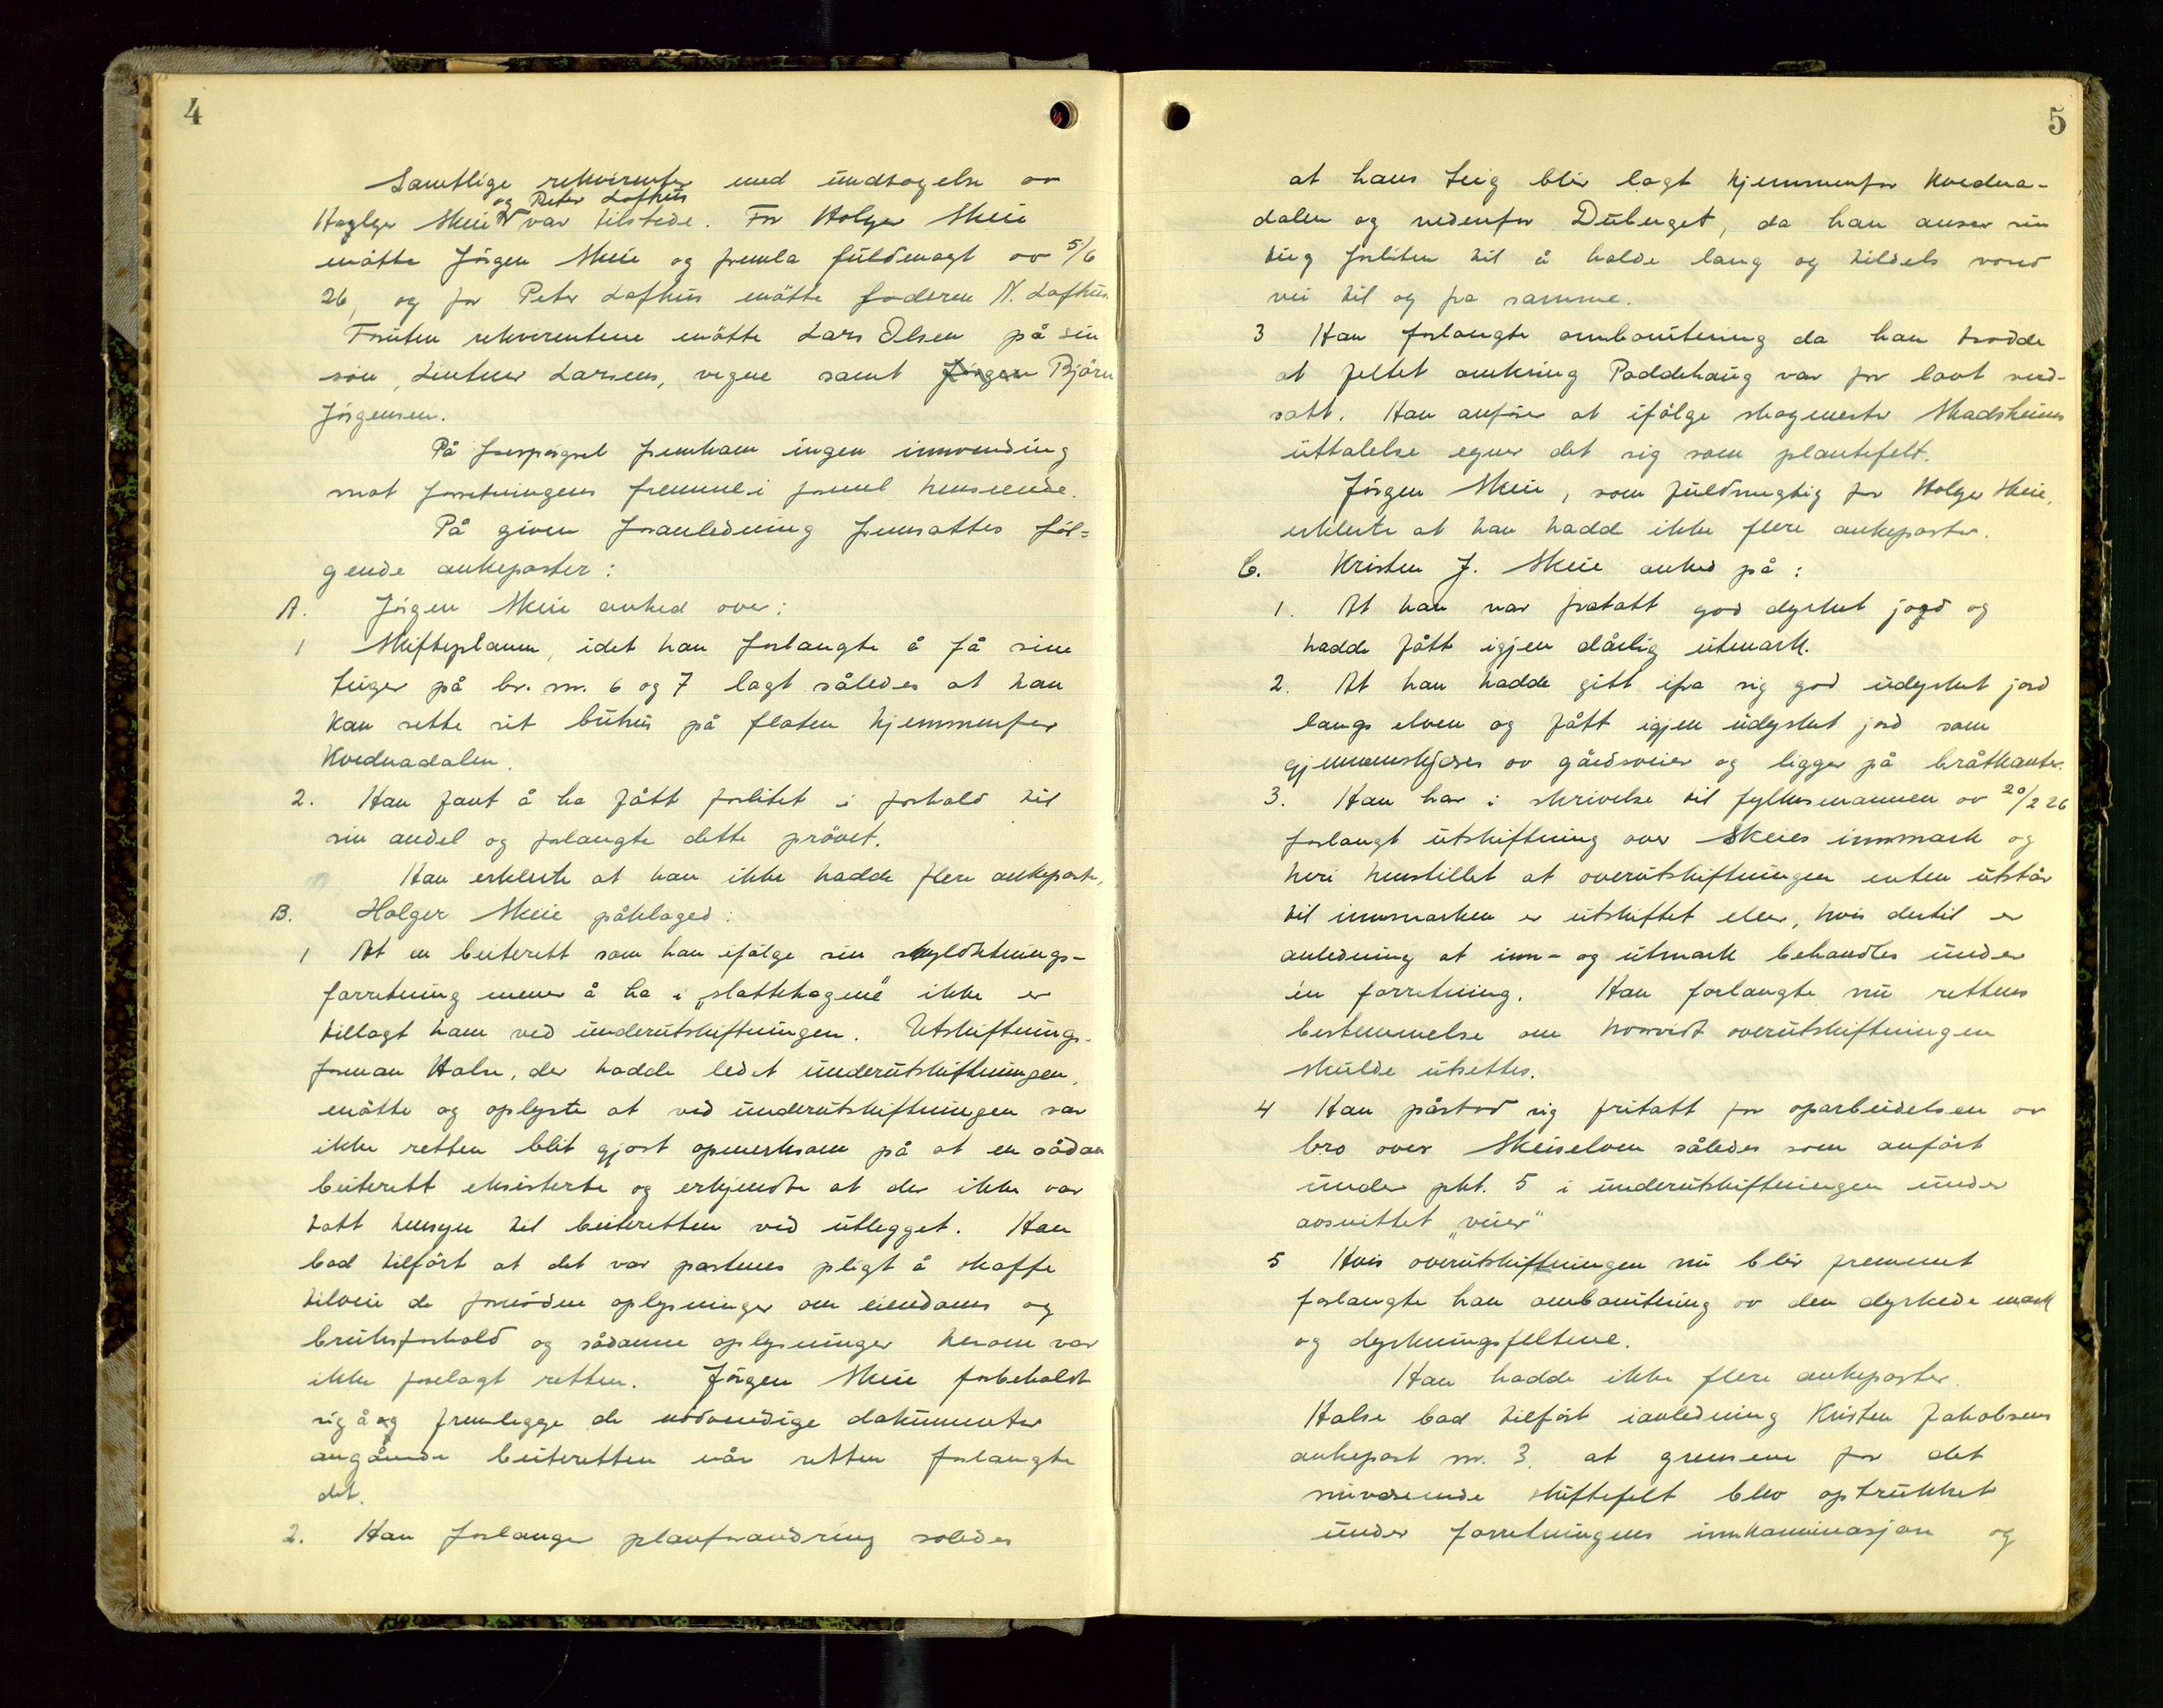 4
Samtlige rekvirenter med undtagelse av
og Peter Lofthus
Holger Skeie var tilstede. For Holger Skeie
møtte Jörgen Skeie og fremla fuldmagt av 5/6
26, og for Peter Lofthus møtte faderen N. Lofthus.
Foruten rekvirentene møtte Lars Olsen på sin
søn, Lars​ens, vegne samt Jörgen Björn
Jörgensen.
På forespørgsel fremkom ingen innvending
mot forretningens fremme i formel henseende.
På given foranledning fremsattes föl=
gende ankeposter:
A. Jörgen Skeie anked over:
1 Skifteplanen, idet han forlangte å få sine
teiger på br. nr. 6 og 7 lagt således at han
kan sette sit buhus på flaten hjemmenfor
Kvednadalen.
2. Han fant å ha fått forlitet i forhold til
sin andel og forlangte dette prövet.
Han erklærte at han ikke hadde flere ankeposter,
B. Holger Skeie påklaged:
1 At en beiterett som han ifölge sin skyldsetnings-
forretning mener å ha i „slattehagene" ikke er
tillagt ham ved underutskiftningen. Utskiftnings-
forman Halse, der hadde ledet underutskiftningen,
møtte og oplyste at ved underutskiftningen var
ikke retten blit gjort opmerksom på at en sådan
beiterett eksisterte og erkjendte at der ikke var
tatt hensyn til beiteretten ved utlegget. Han
bad tilfört at det var partenes pligt å skaffe
tilveie de fornödne oplysninger om eiendoms og
bruksforhold og sådanne oplysninger herom var
ikke forelagt retten. Jörgen Skeie forbeholdt
sig å fremlegge de nödvendige dokumenter
angående beiteretten når retten forlangte
det.
2. Han forlanger planforandring soledes
5
at hans teig blir lagt hjemmenfor Kvedna-
dalen og nedenfor Duberget, da han anser sin
teig forliten til å holde lang og tildels vond
vei til og fra samme.
3 Han forlangte ombonitering da han trodde
at feltet omkring Paddehaug var for lavt verd-
satt. Han anförer at ifölge skogmester Skadsheims
uttalelse egner det sig som plantefelt.
Jörgen Skeie, som fuldmegtig for Holger Skeie,
erklærte at han hadd ikke flere ankeposter.
C. Kristen J. Skeie anked på:
1. At han var fratatt god dyrket jord og
hadde fått igjen dårlig utmark.
2. At han hadde gitt ifra sig god udyrket jord
langs elven og fått igjen udyrket jord som
gjennemskjæres av gårdsveier og ligger på bråtkanter.
3. Han har i skrivelse til fylkesmannen av 20/2 26
forlangt utskiftning over Skeies innmark og
heri henstillet at overutskiftningen enten utstår
til innmarken er utskiftet eller, hvis dertil er
anledning at inn- og utmark behandles under
én forretning. Han forlangte nu rettens
bestemmelse om hvorvidt overutskiftningen
skulde utsettes.
4 Han påstod sig fritatt for oparbeidelsen av
bro over Skeiselven således som anfört
under pkt. 5 i underutskiftningen under
avsnittet „veier"
5 Hvis overutskiftningen nu blir fremmet
forlangte han ombonitering av den dyrkede mark
og dyrkningsfeltene.
Han hadde ikke flere ankeposter.
Halse bad tilfört i anledning Kristen Jakobsens
ankepost nr. 3, at grensene for det
nuværende skiftefelt blev optrukket
under forretningens innkaminasjon og